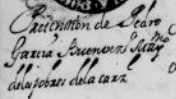 Presentasion de Pedro
Garcia Buenvers Relʳ
de los pobres de la carz